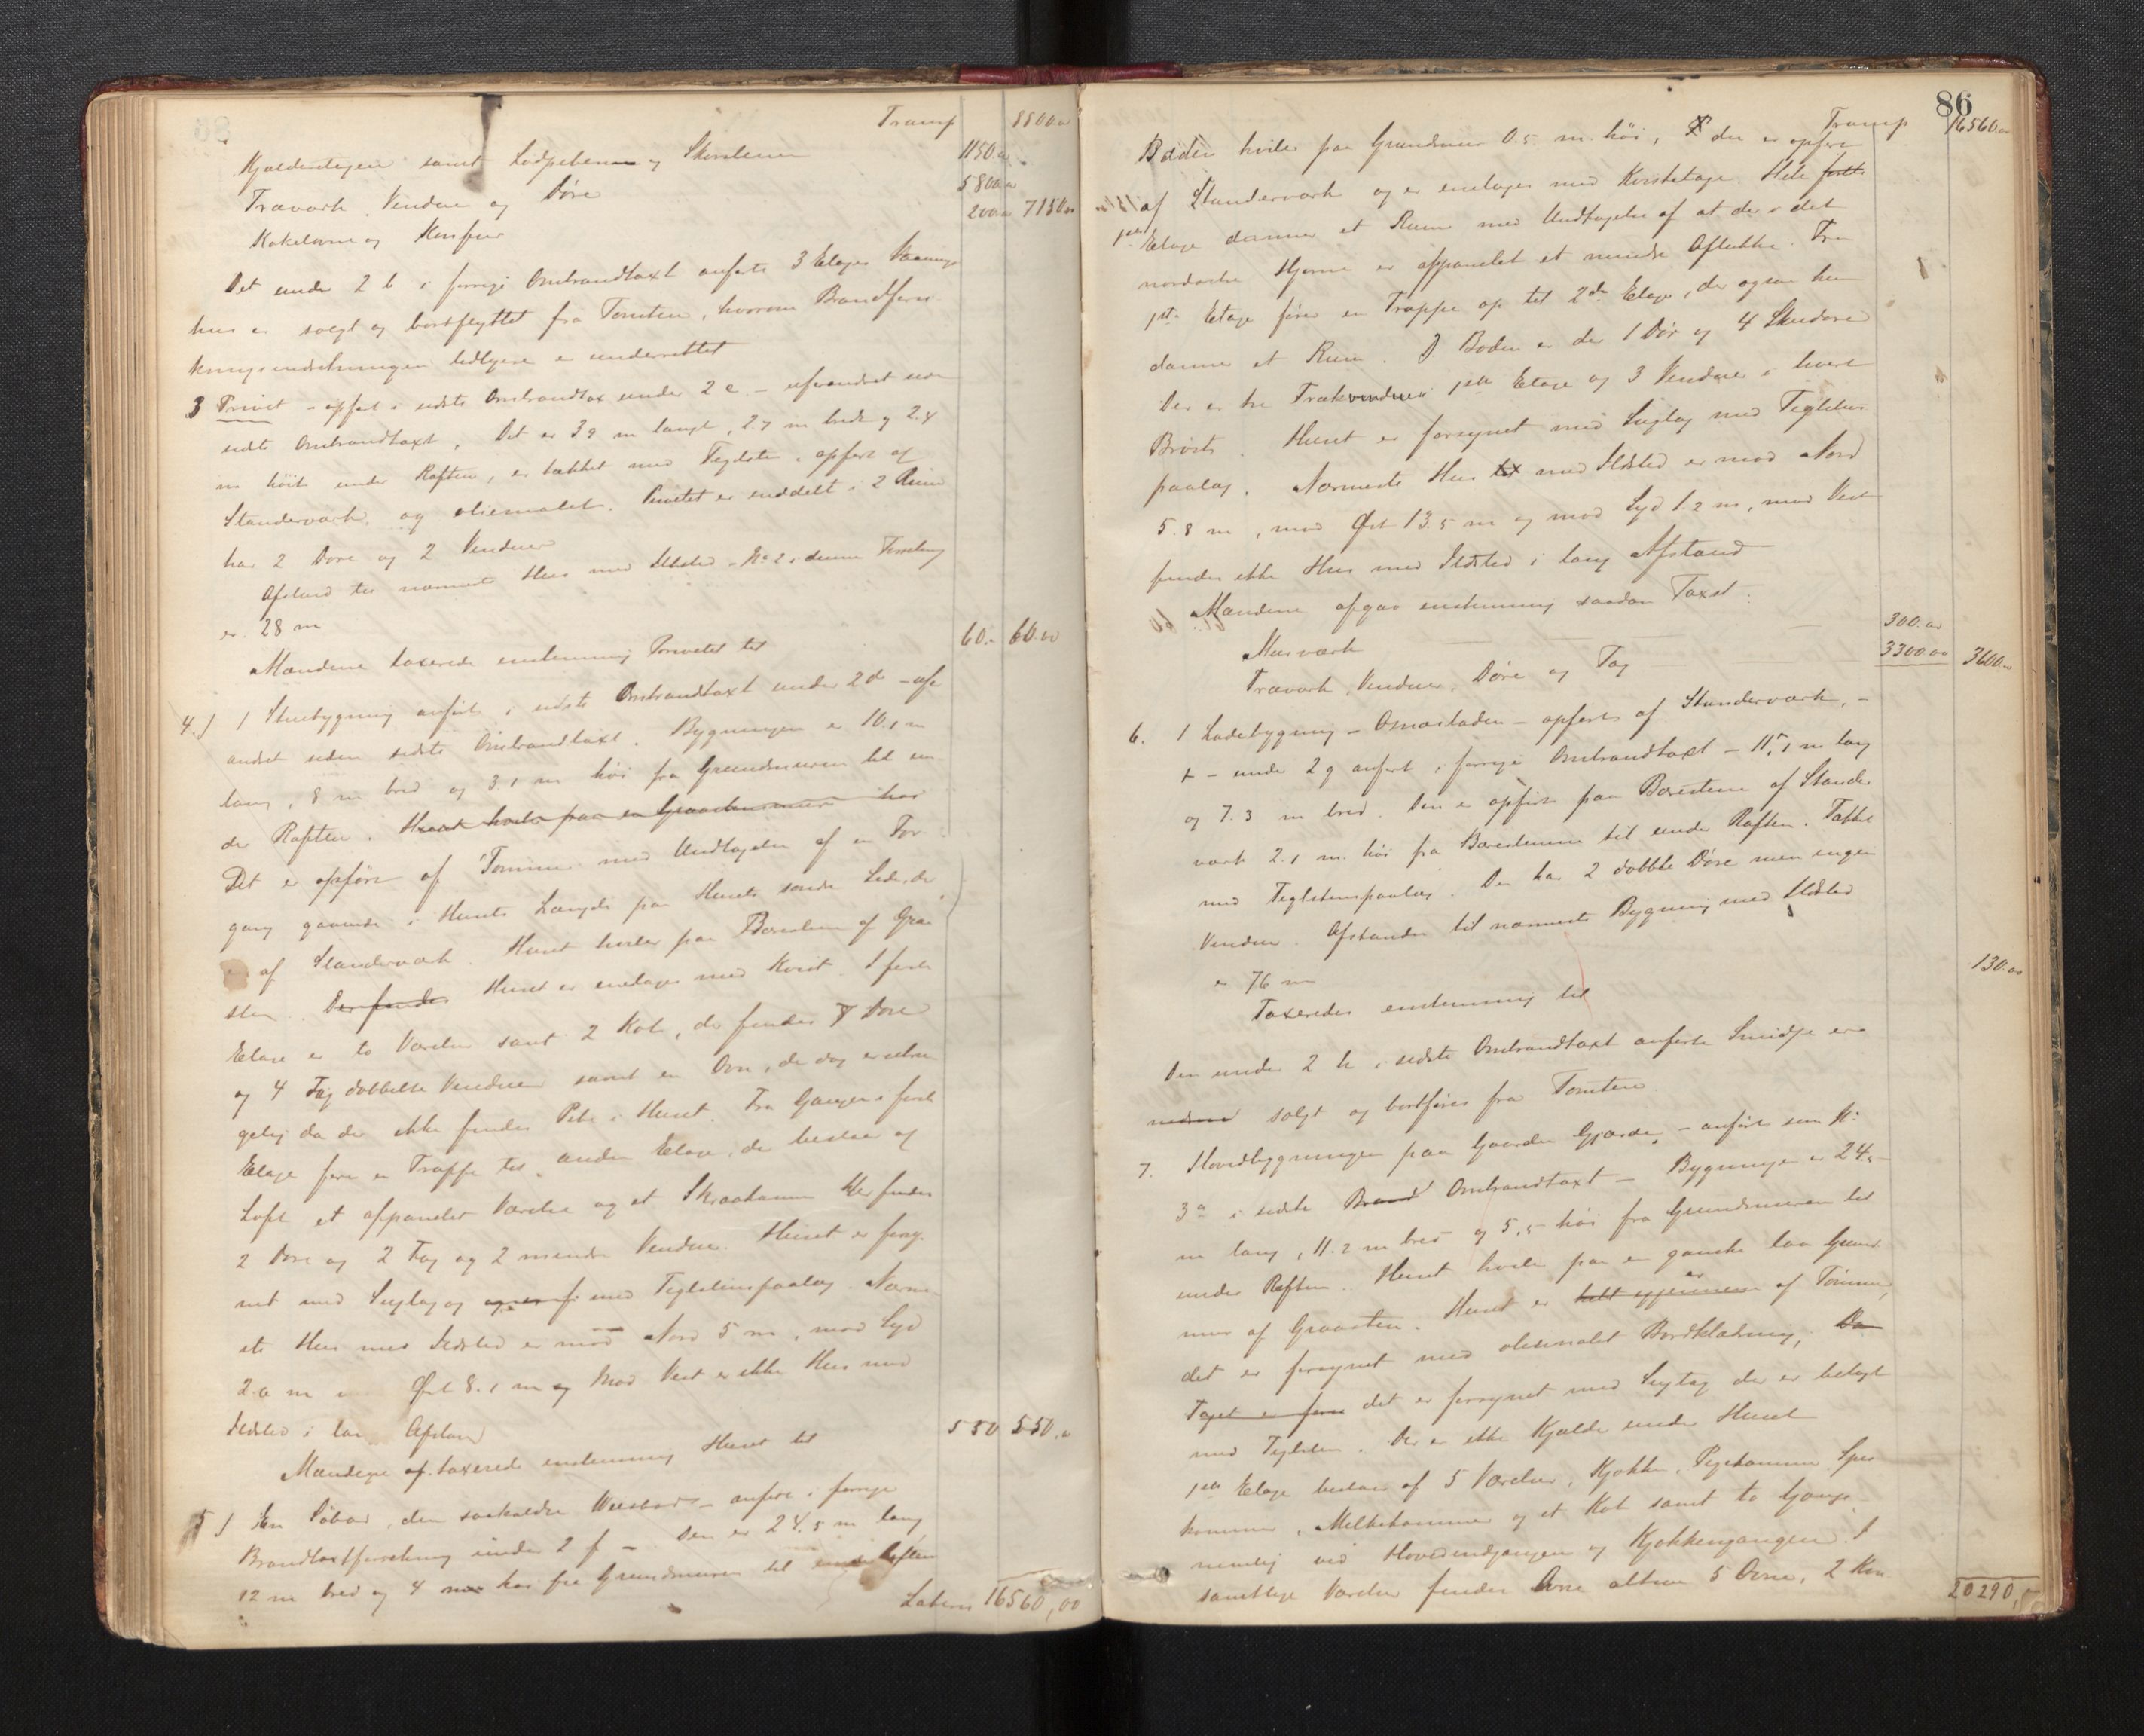 Transp 8800.00
Kjælderstigen samt Lodpiberne og Skorstenen 1150.00
Træværk, Vinduer og Døre 5800.00
Kakelovne og Komfur 200.00 7150.00
Det under 2 b i forrige Ombrandtaxt anførte 3 Etages Vaanings
hus er solgt og bortflyttet fra Tomten, hvorom Brandforsik
kringsindretningen tidligere er underrettet
3 Privet - opført i sidste Ombrandtax under 2 c - uforandret siden
sidste Ombrandtaxt. Det er 3.9 m langt, 2.7 m bredt og 2.4
m høit under Raften, er tækket med Teglsten, opført af
Standerværk og oliemalet. Privetet er inddelt i 2 Rum
har 2 Døre og 2 Vinduer
Afstand til nærmeste Hus med Ildsted - No 2 i denne Forretning
er 28 m
Mændene taxerede enstemmig Privetet til 60.- 60.00
4.) 1 Stuebygning anført i sidste Ombrandtaxt under 2 d - ufor
andret siden sidste Ombrandtaxt. Bygningen er 10.1 m
lang, 8 m bred og 3.1 m høi fra Grundmuren til un
der Raften. Huset hviler paa en Graastensmur har
Det er opført af Tømmer med Undtagelse af en For
gang gaaende i Husets Længde paa Husets søndre Side, der
er af Standerværk. Huset hviler paa Bærestene af Graa
sten. Der findes Huset er enetages med Kvist. I første
Etage er to Værelser samt 2 Kot, der findes 7 Døre
og 4 Fag dobbelte Vinduer samt en Ovn, der dog er ubru
gelig da der ikke findes Pibe i Huset. Fra Gangen i første
Etage fører en Trappe til anden Etage, der bestaar af
Loft et afpanelet Værelse og et Skraakammer Her findes
2 Døre og 2 Fag og 2 mindre Vinduer. Huset er forsy
net med Sugtag og med Teglstenspaalæg. Nærme
ste Hus med Ildsted er mod Nord 5 m, mod Syd
2.0 m Øst 8.1 m og mod Vest er ikke Hus med
Ildsted i lang Afstand
Mændene af taxerede enstemmig Huset til 550 550.00
5) En Søbod, den saakaldte - anført i forrige
Brandtaxtforretning under 2 f - Den er 24.5 m lang
12 m bred og 4 m høi fra Grundmuren til under Raften
Lateris 16560,00
86
Transp 16560.00
Boden hviler paa Grundmur 0.5 m. høi, den er opført
af Standerværk og er enetages med Kvistetage. Hele første
1ste Etage danner et Rum med Undtagelse af at der i det
nordøstre Hjørne er afpanelet et mindre Aflukke. Fra
1ste Etage fører en Trappe op til 2den Etage, der ogsaa kun
danner et Rum. I Boden er der 1 Dør og 4 Skudøre
Der er tre Trækvinduer 1ste Etage og 3 Vinduer i hvert
Bryst. Huset er forsynet med Sugtag med Teglstens
paalæg. Nærmeste Hus med Ildsted er mod Nord
5.8 m, mod Øst 13.5 m og mod Syd 1.2 m, mod Vest
findes ikke Hus med Ildsted i lang Afstand
Mændene afgav enstemmig saadan Taxt:
Murværk 300.00
Træværk, Vinduer, Døre og Tag 3300.00 3600.00
6. 1 Ladebygning - - opført af Standerværk, -
- under 2 g anført i forrige Ombrandtaxt - 11,1 m lang
og 7.3 m bred. Den er opført paa Bærestene af Stander
værk 2.1 m. høi fra Bærestenene til under Raften. Tækket
med Teglstenspaalæg. Den har 2 dobbte Døre men ingen
Vinduer. Afstanden til nærmeste Bygning med Ildsted
er 76 m
Taxeredes enstemmig til 130.00
Den under 2 h i sidste Ombrandtaxt anførte Smidje er
solgt og bortført fra Tomten.
7. Hovedbygningen paa Gaarden Gjærde, - anført som No
3 a i sidste Brand Ombrandtaxt - Bygningen er 24.-
m lang, 11.2 m bred og 5,5 høi fra Grundmuren til
under Raften. Huset hviler paa en ganske lav Grund
mur af Graasten. Huset er helt igjennem er af Tømmer,
det er forsynet med oliemalet Bordklædning, Da
Taget er fors det er forsynet med Sugtag der er belagt
med Teglsten. Der er ikke Kjælder under Huset
1ste Etage bestaar af 5 Værelser, Kjøkken, Pigekammer, Spise
kammer, Melkekammer og et Kot samt to Gange
nemlig ved Hovedindgangen og Kjøkkengangen. I
samtlige Værelser findes Ovne altsaa 5 Ovne, 2 Kom
20290,00